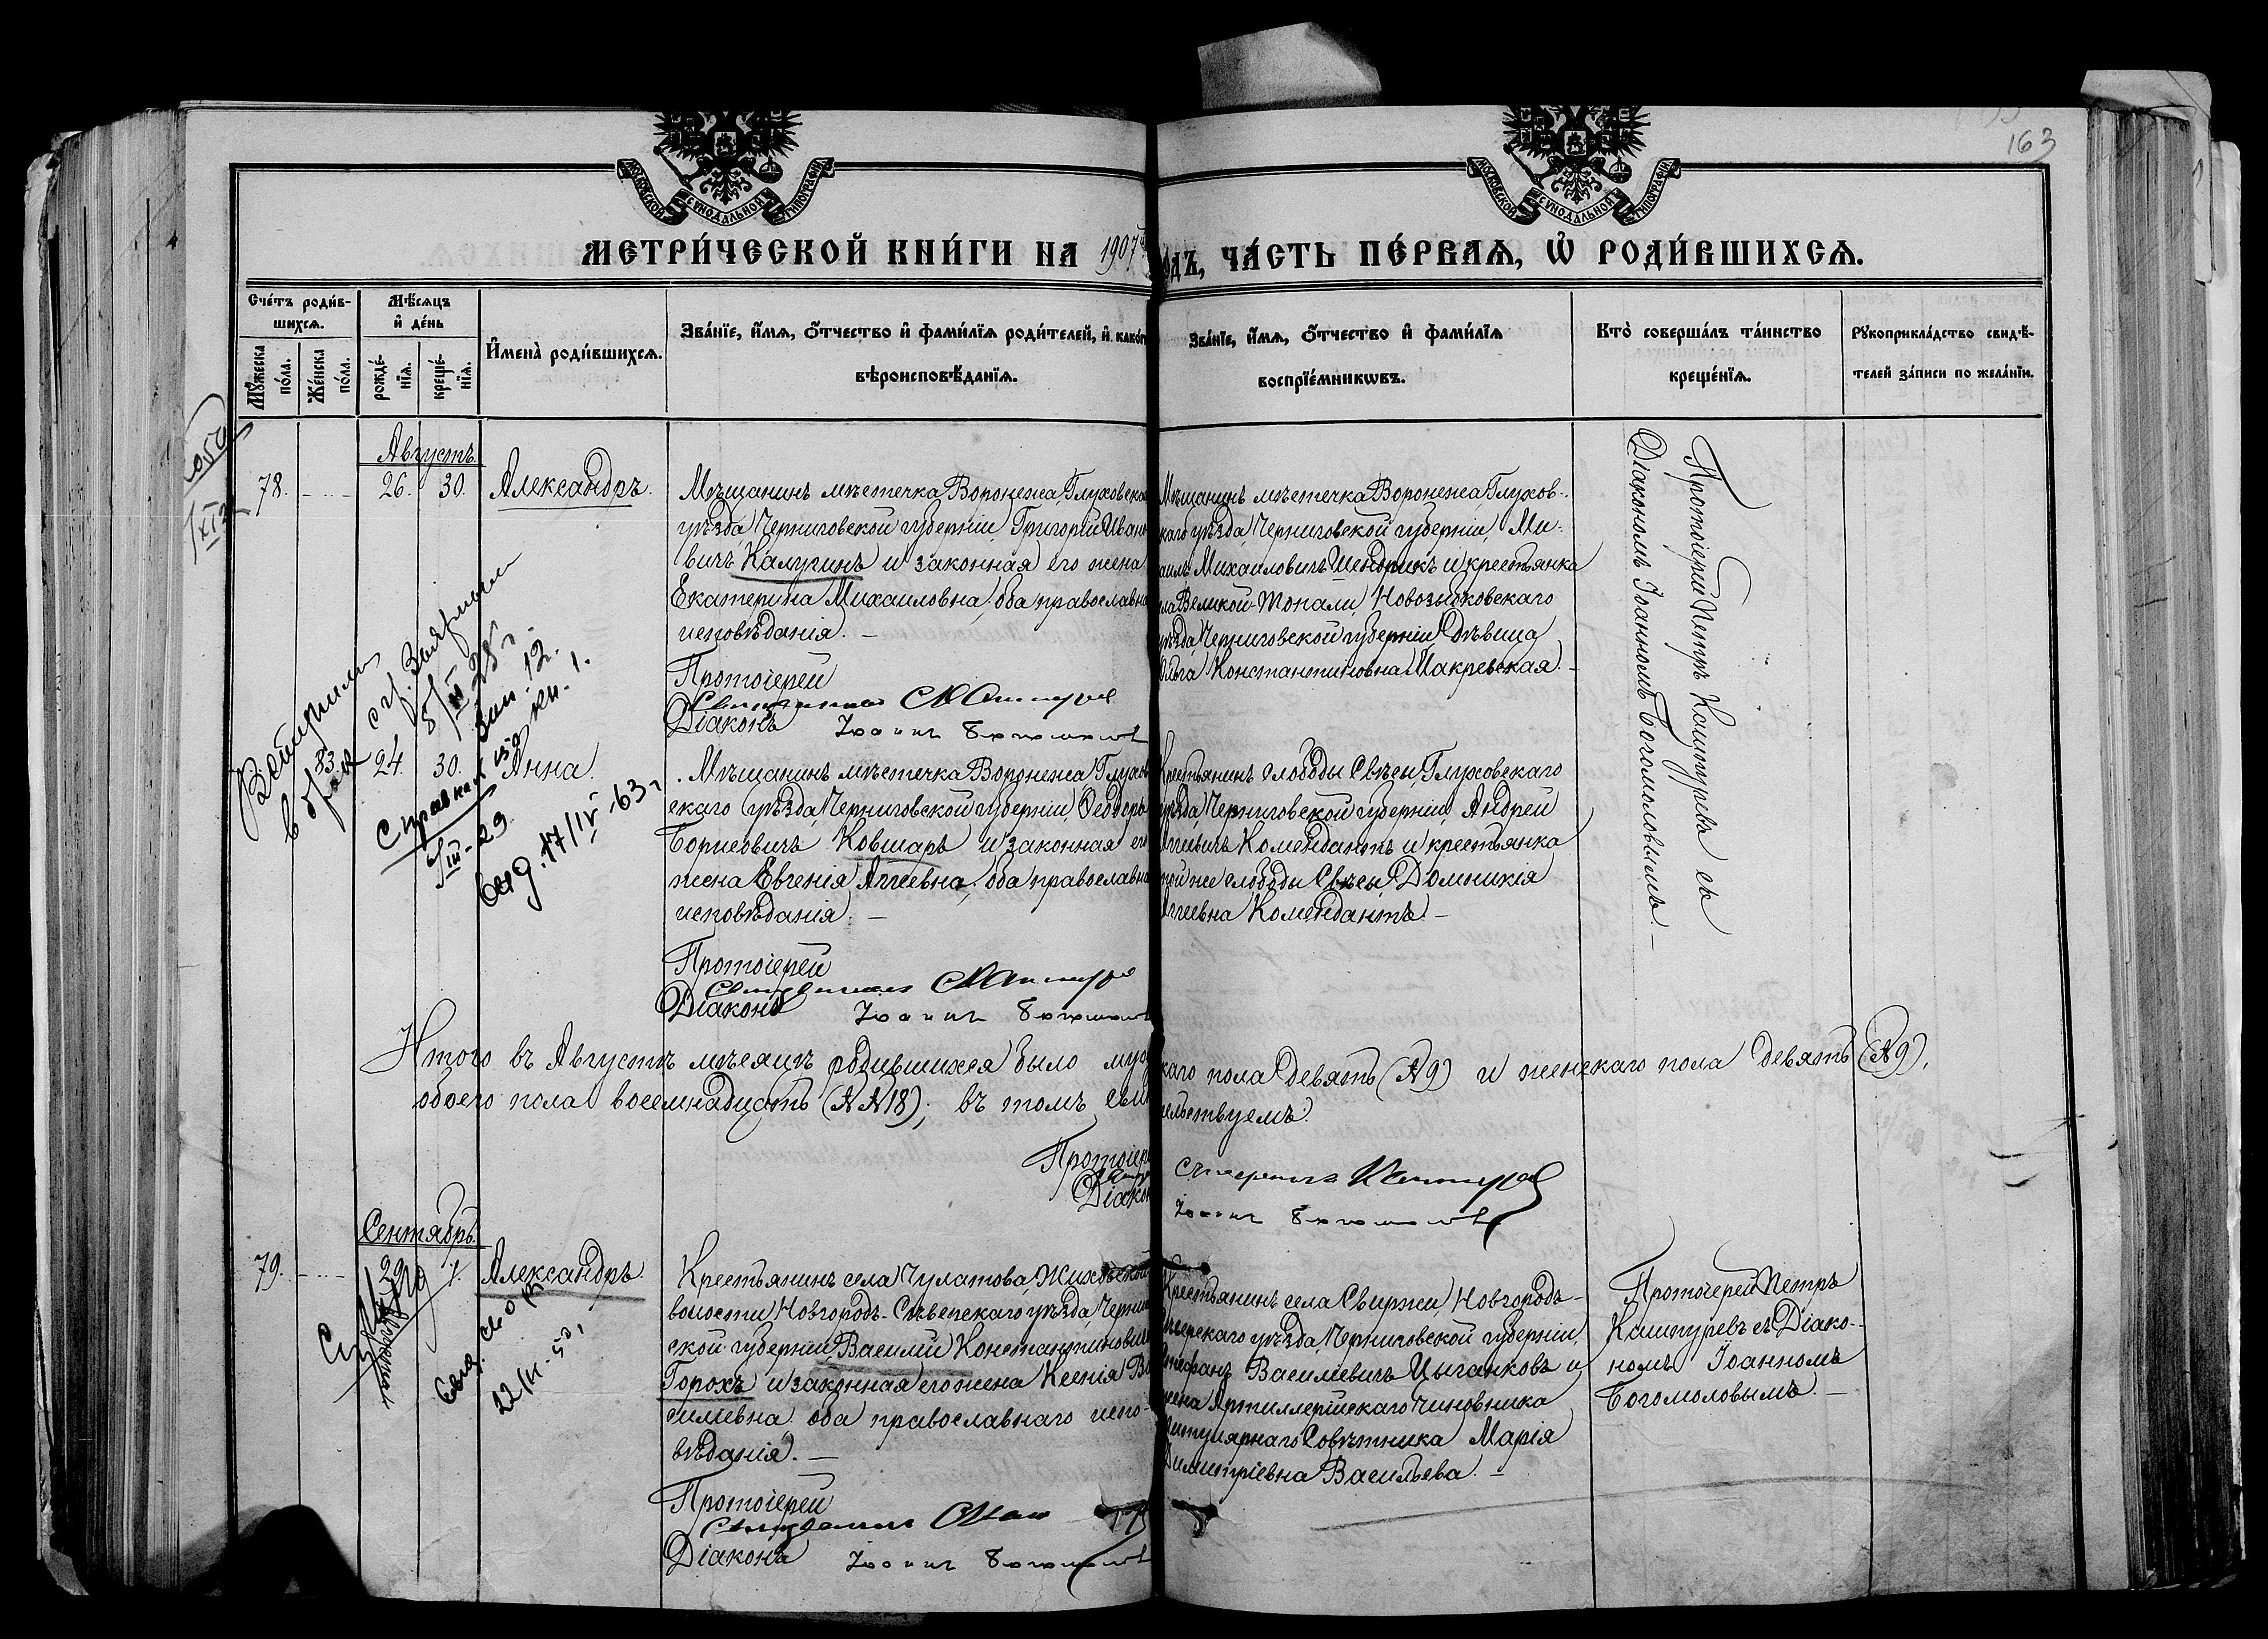 163
МЕТРИ́ЧЕСКОЙ КНИ́ГИ НА 1907 ОДЪ, ЧА́СТЬ ПЕ́РВАѦ, Ѡ҆ РОДИ́ВШИХСѦ.
Сче́тъ роди́в-
шихсѧ.
Мѣ́сѧцъ
и҆ де́нь
Мꙋ́жеска
по́ла.
Же́нска
по́ла.
рожде́-
нїѧ.
креще́-
нїѧ.
И҆мена̀ роди́вшихсѧ.
Зва́нїе, и҆́мѧ, ѻ҆́тчество и҆ фами́лїѧ роди́телей, и҆ како́г
вѣроисповѣ́данїѧ.
Зва́нїе, и҆́мѧ, ѻ҆́тчество и҆ фами́лїѧ
воспрїе́мникѡвъ.
Кто̀ соверша́лъ та́инство
креще́нїѧ.
Рꙋкоприкла́дство свидѣ́-
телей за́писи по жела́нїю.
Августъ.
78. 26. 30. Александръ.
Мѣщанинъ мѣстечка Воронежа, Глуховска
уѣзда, Черниговской губерніи, Григорій Ивано
вичъ Калугинъ и законная его жена
Екатерина Михаиловна; оба православна
исповѣданія. —
Протоіерей
Діаконъ Іоаннъ Богомоловъ
Мѣщанинъ мѣстечка Воронежа, Глухов-
каго уѣзда, Черниговской губерніи, Ми-
аилъ Михаиловичъ Шендрикъ и крестьянка
ла Великой-Топали, Новозыбковскаго
уѣзда, Черниговской губерніи, дѣвица
Ольга Константиновна Макревская. —
Протоіерей Петръ Кашпуревъ съ
Діакономъ Іоанномъ Богомоловымъ. —
в брак
с гр.
зап. 12.
Справка
III-29
83. 24. 30. Анна.
выд. 17/IV-63 г
Мѣщанинъ мѣстечка Воронежа, Глухов
скаго уѣзда, Черниговской губерніи, Ѳеодоръ
Борисовичъ Ковшаръ и законная ег
жена Евгенія Аггеевна; оба православна
исповѣданія. —
Протоіерей
Діаконъ Іоаннъ Богомоловъ
Крестьянинъ слободы Свѣсы, Глуховскаго
уѣзда, Черниговской губерніи, Андрей
Аггеевичъ Комендантъ и крестьянка
той же слободы Свѣсы, Домникія
Аггеевна Комендантъ. —
Итого въ Августѣ мѣсяцѣ родившихся было муж
скаго пола девять (№ 9) и женскаго пола девять (№ 9),
обоего пола восемнадцать (№№ 18); въ томъ сви
ѣтельствуемъ.
Протоіер
Діакон
Іоаннъ Богомоловъ
Сентябрь.
79. 29 1. Александръ.
22/VI-50,
Крестьянинъ села Чулатова, Жиховской
волости, Новгородъ-Сѣверскаго уѣзда, Черни
ской губерніи, Василій Константинович
Горохъ и законная его жена Ксенія Ва
силіевна; оба православнаго испо-
вѣданія. —
Протоіерей
Діаконъ Іоаннъ Богомоловъ
Крестьянинъ села Свиржи, Новгородъ-
Сѣверскаго уѣзда, Черниговской губерніи,
Стефанъ Василіевичъ Цыганковъ и
жена Артиллерійскаго чиновника
Титулярнаго Совѣтника Марія
Димитріевна Васильева. —
Протоіерей Петръ
Кашпуревъ съ Діако-
номъ Іоанномъ
Богомоловымъ. —